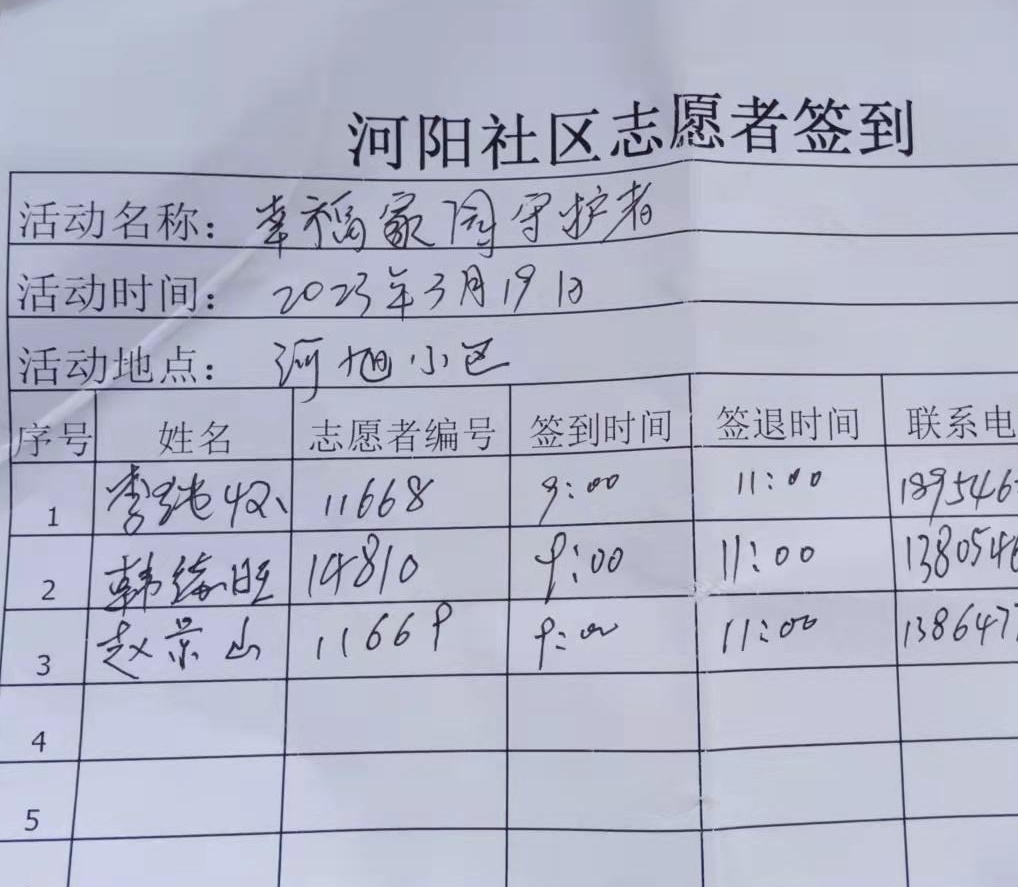 河阳社区志愿者签到
活动名称：幸福家园守护者
活动时间：2023年3月19日
活动地点：河旭小区
序号 姓名 志愿者编号 签到时间 签退时间 联系电
1 李纯 11668 9:00 11:00 189546
2 韩德旺 14810 9:00 11:00 1380546
3 赵景山 11669 9:00 11:00 138647
4
5